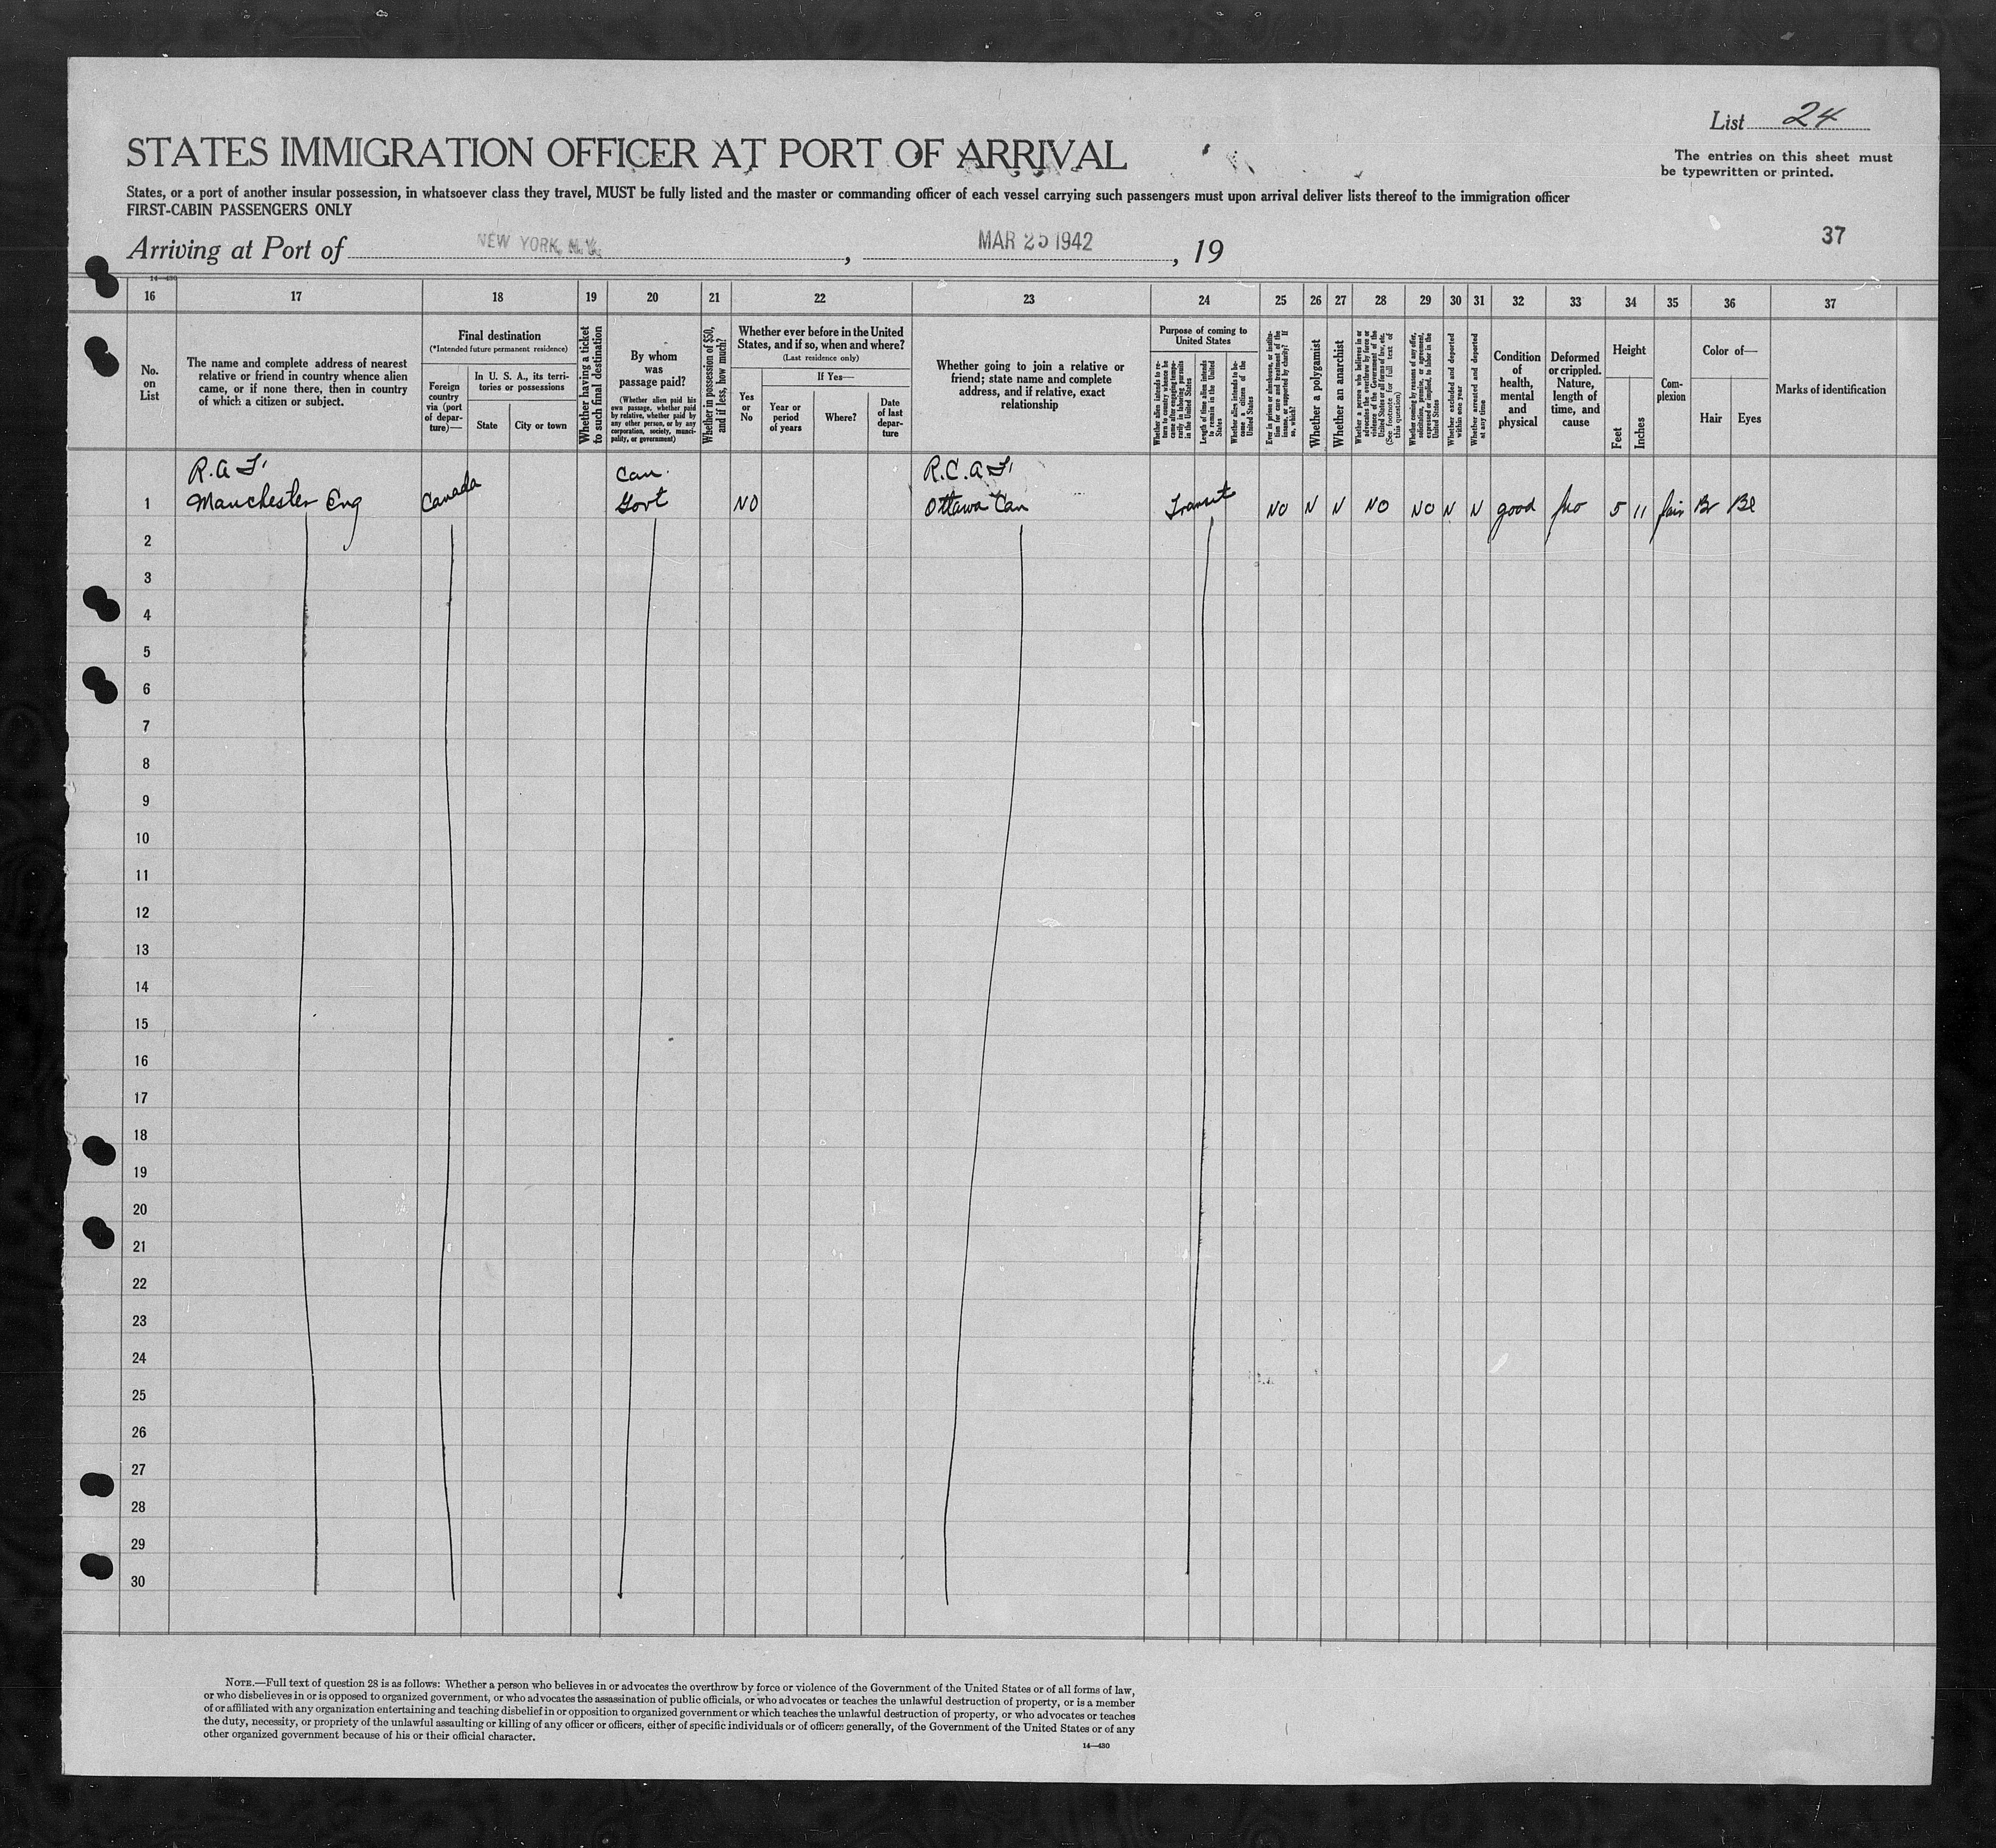 List 24
STATES IMMIGRATION OFFICER AT PORT OF ARRIVAL
The entries on this sheet must
be typewritten or printed.
States, or a port of another insular possession, in whatsoever class they travel, MUST be fully listed and the master or commanding officer of each vessel carrying such passengers must upon arrival deliver lists thereof to the immigration officer
FIRST-CABIN PASSENGERS ONLY
Arriving at Port of NEW YORK, N.Y., MAR 25 1942, 19
37
14—430
16 17 18 19 20 21 22 23 24 25 26 27 28 29 30 31 32 33 34 35 36 37
No.
on
List
The name and complete address of nearest
relative or friend in country whence alien
came, or if none there, then in country
of which a citizen or subject.
Final destination
(*Intended future permanent residence)
Foreign
country
via (port
of depar-
ture)—
In U. S. A., its terri-
tories or possessions
State
City or town
Whether having a ticket
to such final destination
By whom
was
passage paid?
(Whether alien paid his
own passage, whether paid
by relative, whether paid by
any other person, or by any
corporation, society, munici-
pality, or government)
Whether in possession of $50,
and if less, how much?
Whether ever before in the United
States, and if so, when and where?
(Last residence only)
Yes
or
No
If Yes—
Year or
period
of years
Where?
Date
of last
depar-
ture
Whether going to join a relative or
friend; state name and complete
address, and if relative, exact
relationship
Purpose of coming to
United States
Whether alien intends to re-
turn to country whence he
came after engaging tempo-
rarily in laboring pursuits
in the United States
Length of time alien intends
to remain in the United
States
Whether alien intends to be-
come a citizen of the
United States
Ever in prison or almshouse, or institu-
tion for care and treatment of the
insane, or supported by charity? If
so, which?
Whether a polygamist
Whether an anarchist
Whether a person who believes in or
advocates the overthrow by force or
violence of the Government of the
United States or all forms of law, etc.
(See footnote for full text of
this question)
Whether coming by reason of any offer,
solicitation, promise, or agreement,
expressed or implied, to labor in the
United States
Whether excluded and deported
within one year
Whether arrested and deported
at any time
Condition
of
health,
mental
and
physical
Deformed
or crippled.
Nature,
length of
time, and
cause
Height
Feet
Inches
Com-
plexion
Color of—
Hair
Eyes
Marks of identification
R.A.F. Can. R.C.A.F.
1 Manchester Eng Canada Govt NO Ottawa Can Transit NO N N NO NO N N good no 5 11 fair Br Bl
2
3
4
5
6
7
8
9
10
11
12
13
14
15
16
17
18
19
20
21
22
23
24
25
26
27
28
29
30
NOTE.—Full text of question 28 is as follows: Whether a person who believes in or advocates the overthrow by force or violence of the Government of the United States or of all forms of law,
or who disbelieves in or is opposed to organized government, or who advocates the assassination of public officials, or who advocates or teaches the unlawful destruction of property, or is a member
of or affiliated with any organization entertaining and teaching disbelief in or opposition to organized government or which teaches the unlawful destruction of property, or who advocates or teaches
the duty, necessity, or propriety of the unlawful assaulting or killing of any officer or officers, either of specific individuals or of officers generally, of the Government of the United States or of any
other organized government because of his or their official character.
14—430